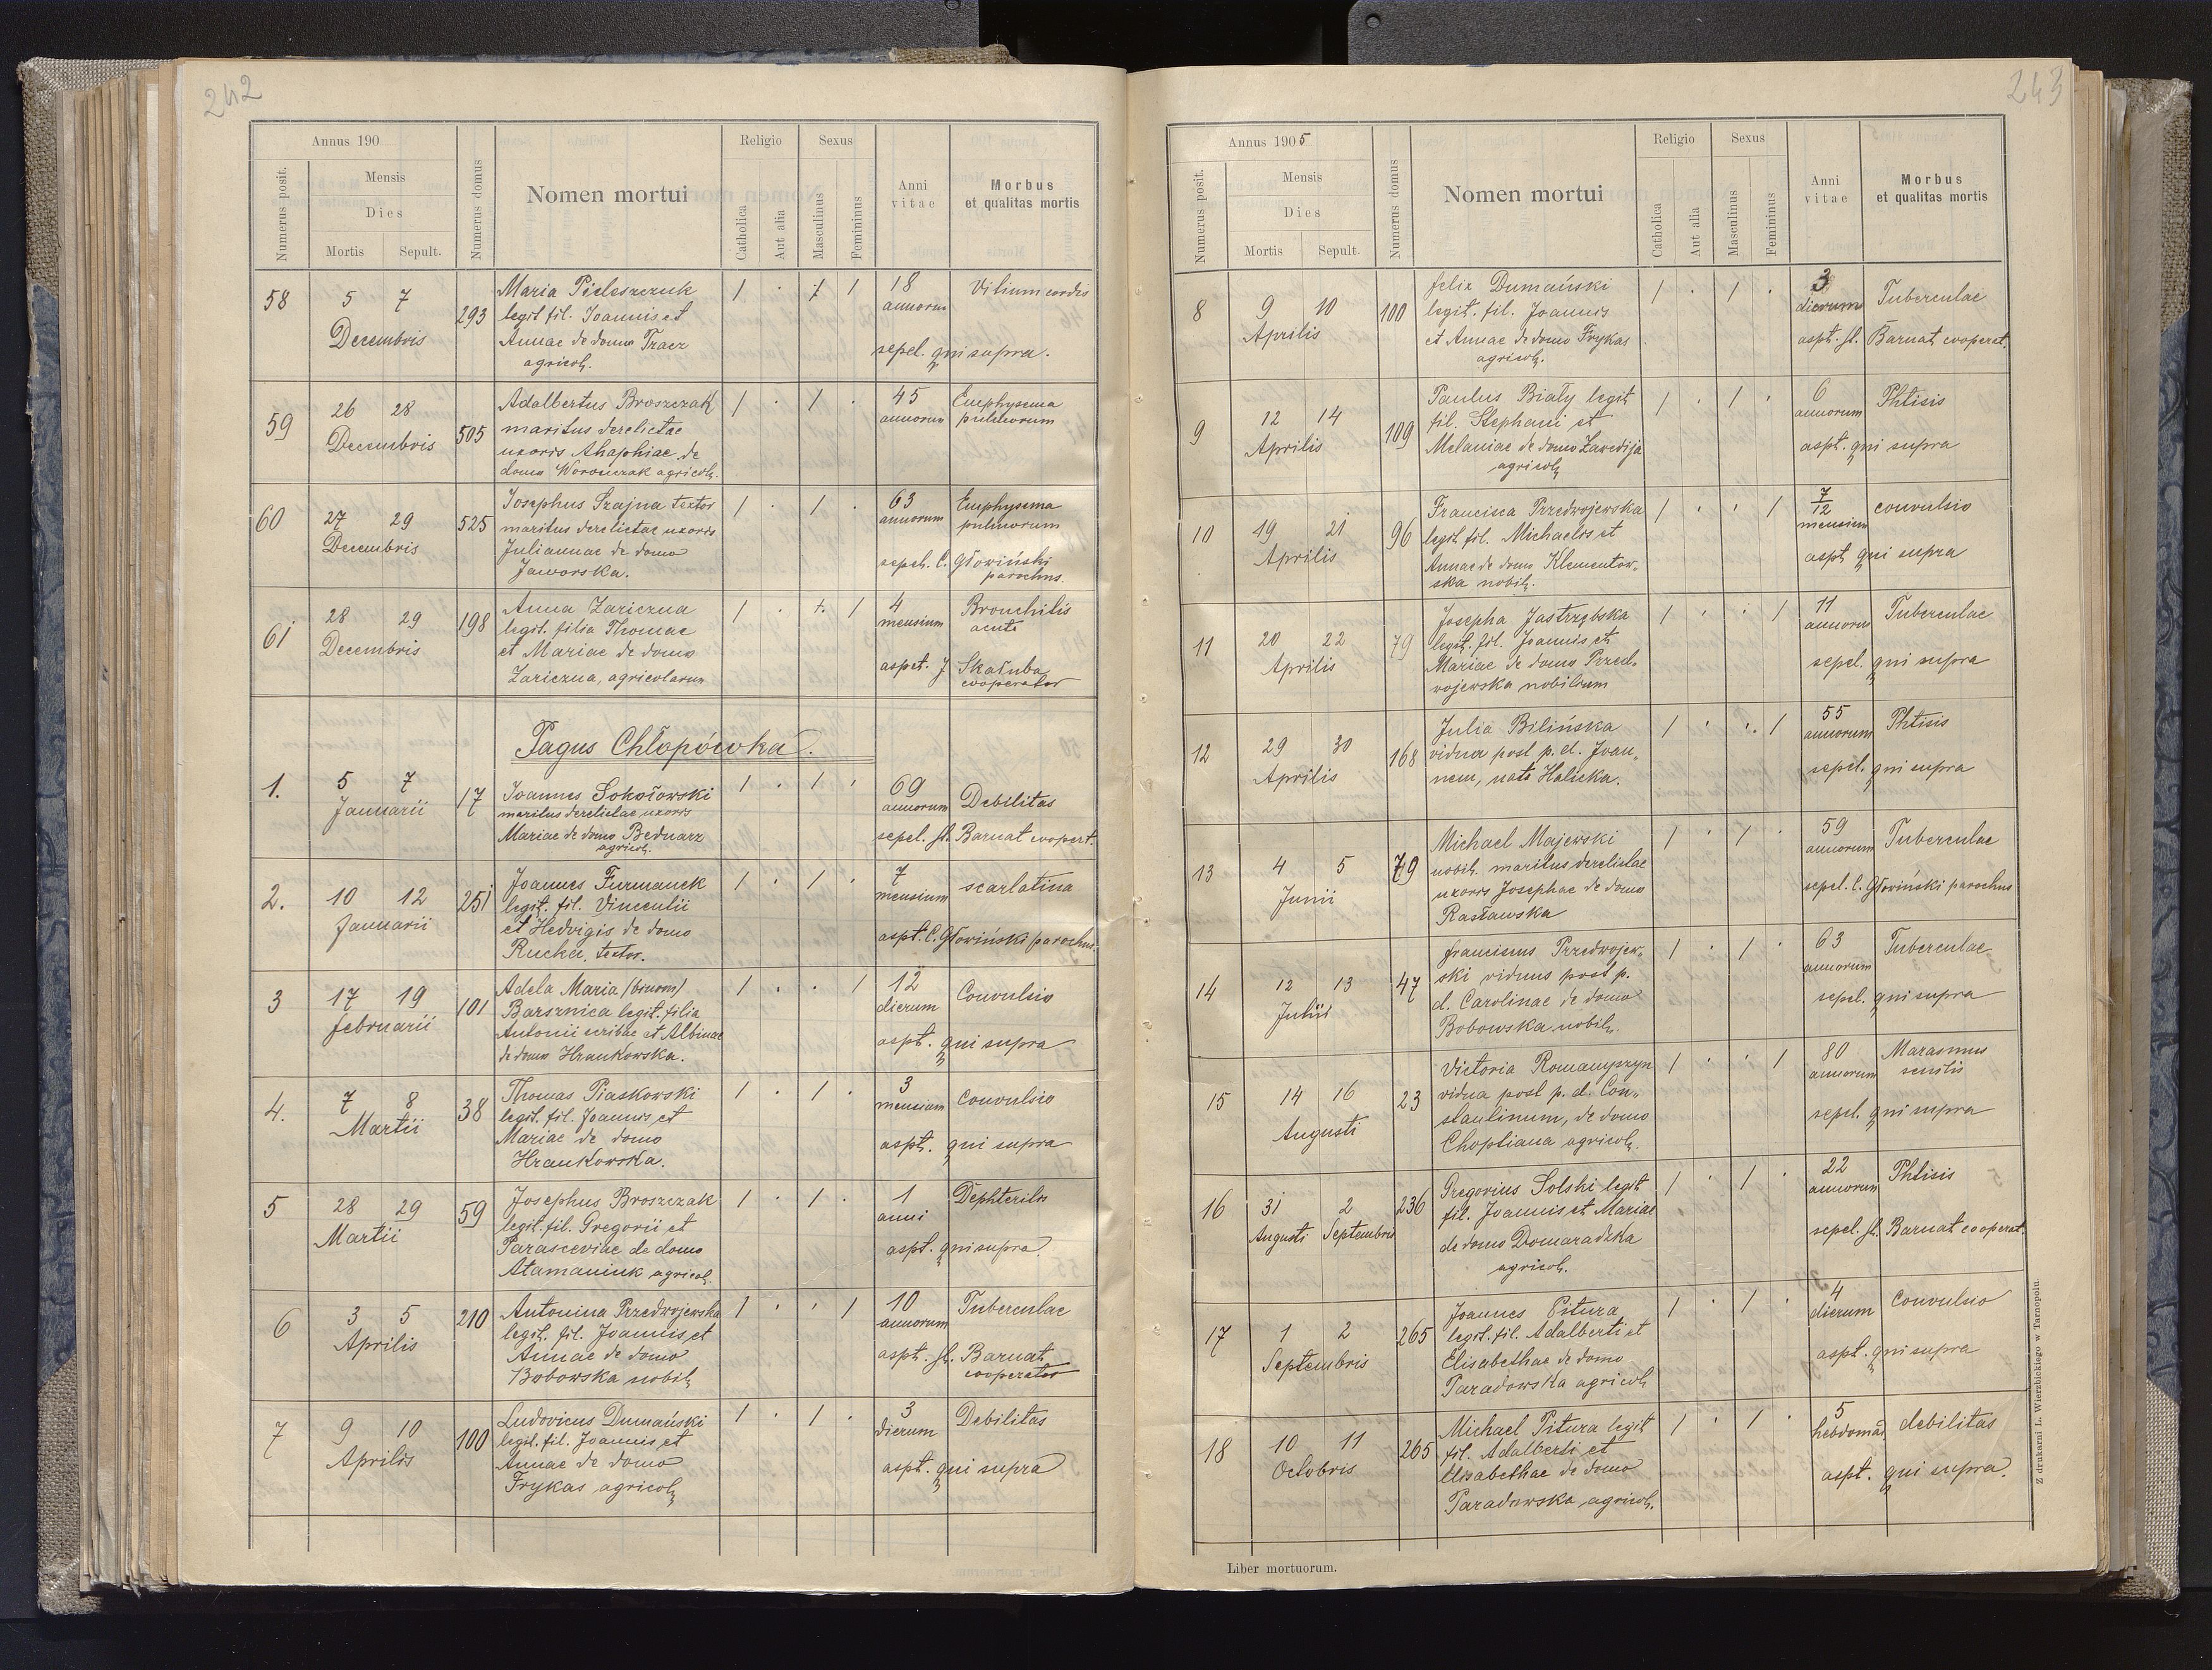 242
Annus 190
Numerus posit.
Mensis
Dies
Mortis Sepult.
Numerus domus
Nomen mortui
Religio
Catholica
Aut alia
Sexus
Masculinus
Femininus
Anni vitae
Morbus
et qualitas mortis
58 5 7 Decembris 293
Maria Pieleszczuk
legit fil. Joannis et
Annae de domo Tracz
agricol.
1 · 1 18 annorum Vitium cordis
sepel. qui supra.
59 26 28 Decembris 505
Adalbertus Broszczak
maritus derelictae
uxoris Ahaphiae de
domo Woronczak agricol.
1 · 1 · 45 annorum Emphysema
pulmorum
60 27 29 Decembris 525
Josephus Szajna textor
maritus derelictae uxoris
Juliannae de domo
Jaworska.
1 · 1 · 63 annorum Emphysema
pulmorum
sepel. C. Głowiński
parochus.
61 28 29 Decembris 198
Anna Zariczna
legit. filia Thomae
et Mariae de domo
Zariczna, agricolarum
1 · 1 4 mensium Bronchitis
acuta
aspet. J Skałuba
cooperator
Pagus Chłopówka.
1. 5 7 Januarii 17
Joannes Sokołowski
maritus derelictae uxoris
Mariae de domo Bednarz
agricol.
1 · 1 · 69 annorum Debilitas
sepel. St. Barnat coopert.
2. 10 12 Januarii 251
Joannes Furmanek
legit. fil. Vincentii
et Hedvigis de domo
Rucka, textor.
1 · 1 · 7 mensium scarlatina
aspt. C. Głowiński parochus.
3 17 19 februarii 101
Adela Maria (binom)
Barsznica legit. filia
Antonii scribae et Albinae
de domo Hrankowska.
1 · · 1 12 dierum Convulsio
aspt. qui supra
4. 7 8 Martii 38
Thomas Piaskowski
legit. fil. Joannis et
Mariae de domo
Hrankowska.
1 · 1 · 3 mensium convulsio
aspt. qui supra
5 28 29 Martii 59
Josephus Broszczak
legit. fil. Gregorii et
Parasceviae de domo
Atamaniuk agricol.
1 · 1 · 1 anni Dephteritis
aspt. qui supra.
6 3 5 Aprilis 210
Antonina Przedwojewska
legit. fil. Joannis et
Annae de domo
Bobowska nobil.
1 · · 1 10 annorum Tuberculae
aspt. St. Barnat
cooperator
7 9 10 Aprilis 100
Ludovicus Dumański
legit. fil. Joannis et
Annae de domo
Frykas agricol.
1 · 1 · 3 dierum Debilitas
aspt. qui supra
243
Annus 1905
Numerus posit.
Mensis
Dies
Mortis Sepult.
Numerus domus
Nomen mortui
Religio
Catholica
Aut alia
Sexus
Masculinus
Femininus
Anni vitae
Morbus
et qualitas mortis
8 9 10 Aprilis 100
felix Dumański
legit. fil. Joannis
et Annae de domo Frykas
agricol.
1 · 1 · 3 dierum Tuberculae
aspt. St. Barnat cooperat.
9 12 14 Aprilis 109
Paulus Biały legit
fil. Stephani et
Melaniae de domo Zawedija
agricol.
1 · 1 · 6 annorum Phtisis
aspt. qui supra
10 19 21 Aprilis 96
Francisca Przedwojewska
legit. fil. Michaelis et
Annae de domo Klementow-
ska nobil.
1 · · 1 7/12 mensium convulsio
aspt qui supra
11 20 22 Aprilis 79
Josepha Jastrzębska
legit. fil. Joannis et
Mariae de domo Przed-
wojewska nobilium
1 · · 1 11 annorum Tuberculae
sepel. qui supra
12 29 30 Aprilis 168
Julia Bilińska
vidua post p. d. Joan-
nem, nata Halicka.
1 · · 1 55 annorum Phtisis
sepel. qui supra
13 4 5 Junii 79
Michael Majewski
nobil. maritus derelictae
uxoris Josephae de domo
Rasławska
1 · 1 · 59 annorum Tuberculae
sepel. C. Głowiński parochus
14 12 13 Julii 47
franciscus Przedwojew-
ski viduus post p.
d. Carolinae de domo
Bobowska nobil.
1 · 1 · 63 annorum Tuberculae
sepel. qui supra
15 14 16 Augusti 23
Victoria Romampszyn
vidua post p. d. Con-
stantinum, de domo
Choptiana agricol.
1 · · 1 80 annorum Marasmus
senilis
sepel. qui supra
16 31 Augusti 2 Septembris 236
Gregorius Solski legit
fil. Joannis et Mariae
de domo Domaradzka
agricol.
1 · 1 · 22 annorum Phtisis
sepel. St. Barnat cooperat.
17 1 2 Septembris 265
Joannes Pitura
legit. fil. Adalberti et
Elisabethae de domo
Paradowska agricol
1 · 1 · 4 dierum convulsio
aspt. qui supra
18 10 11 Octobris 265
Michael Pitura legit
fil. Adalberti et
Elisabethae de domo
Paradowska agricol.
1 · 1 · 5 hebdomad. debilitas
aspt. qui supra.
Liber mortuorum.
Z drukarni L. Wierzbickiego w Tarnopolu.